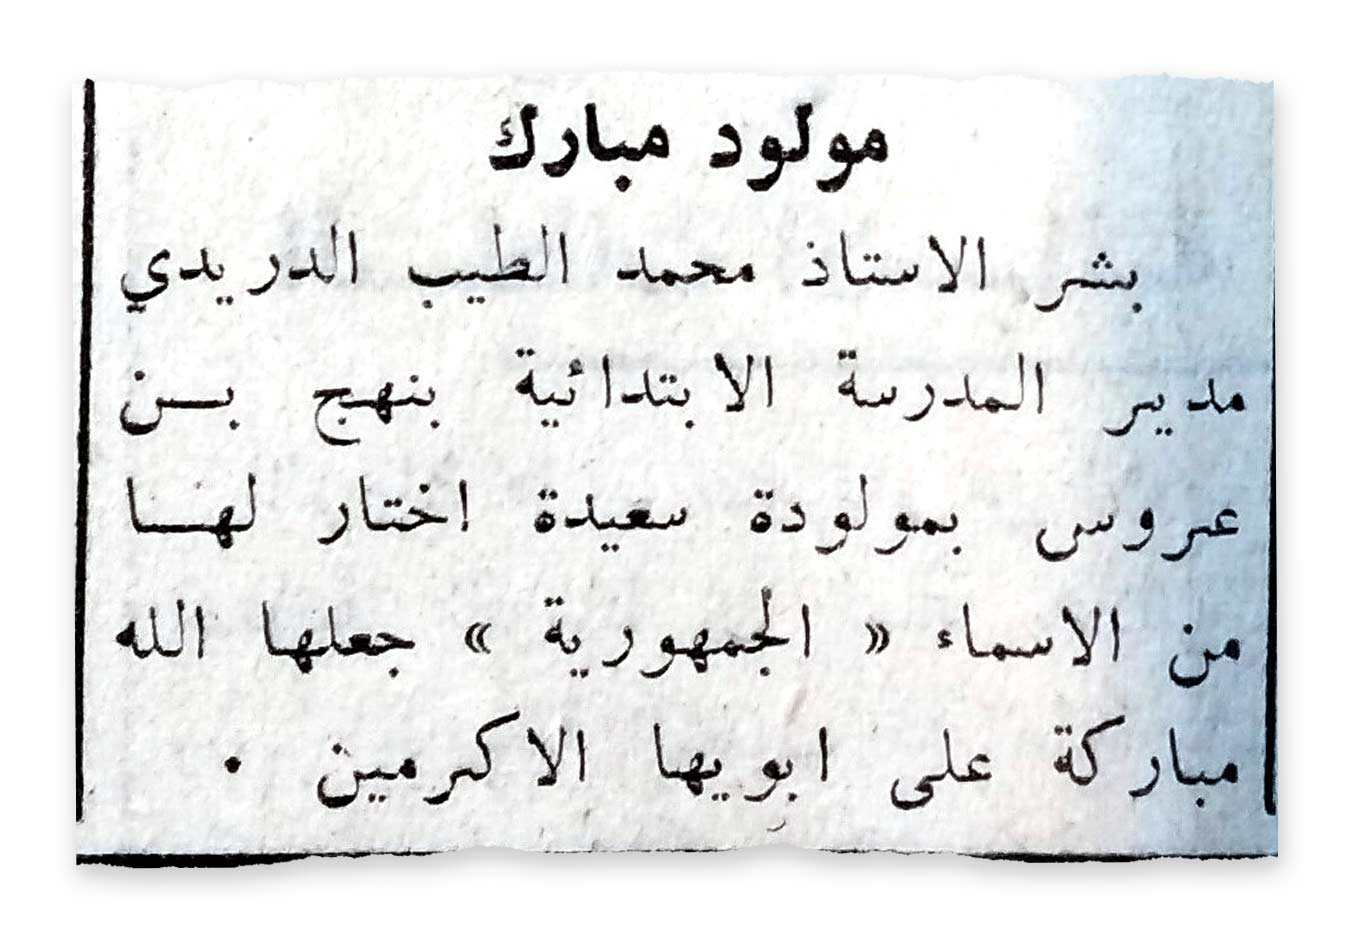 مولود مبارك
بشر الاستاذ محمد الطيب الدريدي
مدير المدرسة الابتدائية بنهج بـــن
عروس بمولودة سعيدة اختار لهـــا
من الاسماء « الجمهورية » جعلها الله
مباركة على ابويها الاكرمين .